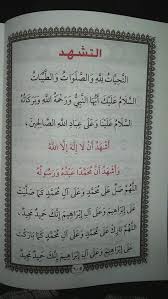 التشهد
التَّحِيَّاتُ لِلَّهِ وَالصَّلَوَاتُ وَالطَّيِّبَاتُ
السَّلَامُ عَلَيْكَ أَيُّهَا النَّبِيُّ وَرَحْمَةُ اللَّهِ وَبَرَكَاتُهُ
السَّلَامُ عَلَيْنَا وَعَلَى عِبَادِ اللَّهِ الصَّالِحِينَ،
أَشْهَدُ أَنْ لَا إِلَهَ إِلَّا اللَّهُ
وَأَشْهَدُ أَنَّ مُحَمَّدًا عَبْدُهُ وَرَسُولُهُ
اللَّهُمَّ صَلِّ عَلَى مُحَمَّدٍ وَعَلَى آلِ مُحَمَّدٍ كَمَا صَلَّيْتَ
عَلَى إِبْرَاهِيمَ وَعَلَى آلِ إِبْرَاهِيمَ إِنَّكَ حَمِيدٌ مَجِيدٌ،
اللَّهُمَّ بَارِكْ عَلَى مُحَمَّدٍ وَعَلَى آلِ مُحَمَّدٍ كَمَا بَارَكْتَ
عَلَى إِبْرَاهِيمَ وَعَلَى آلِ إِبْرَاهِيمَ إِنَّكَ حَمِيدٌ مَجِيدٌ